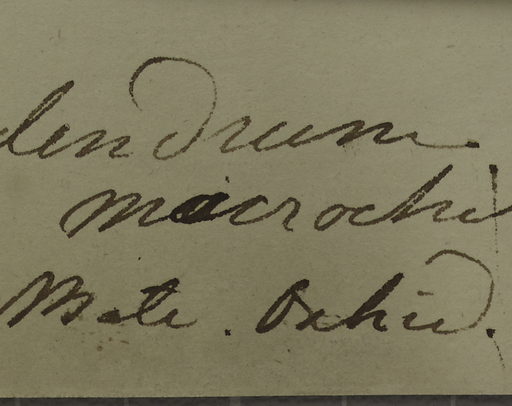 dendrum
macrochi
Bate. Orchid.